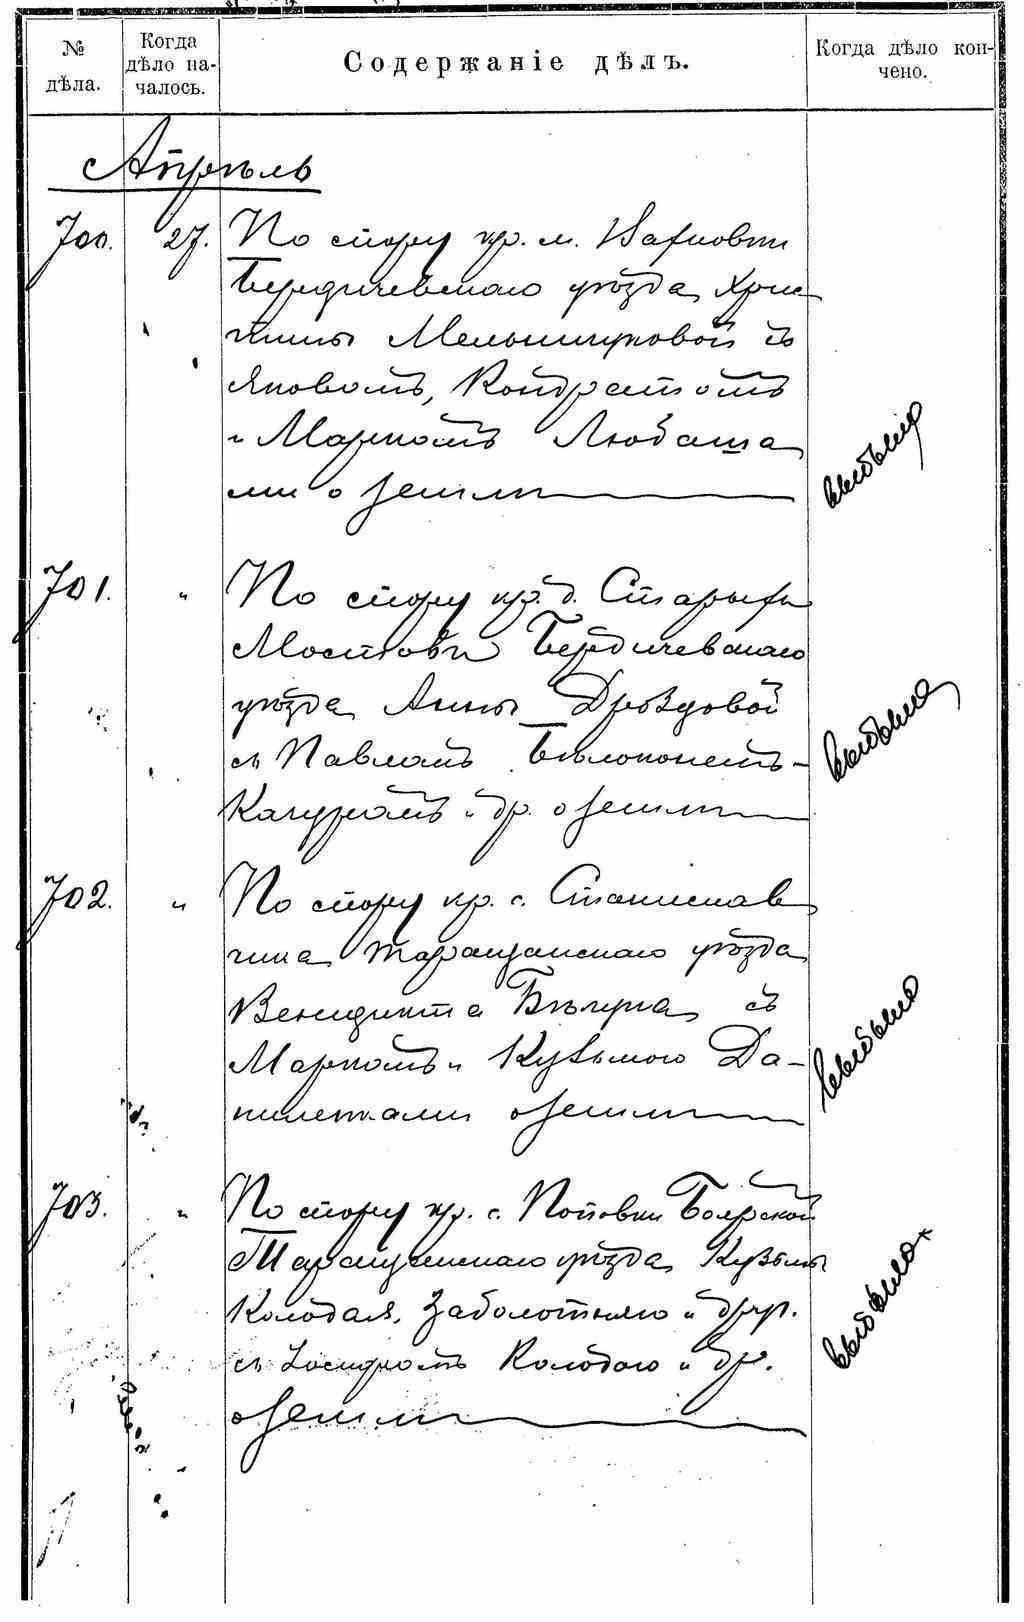 № дѣла.
Когда дѣло на-
чалось.
Содержаніе дѣлъ.
Когда дѣло кон-
чено.
Апрѣль
700. 27. По спору кр. м. Вахновки
Бердичевскаго уѣзда Хрис
тины Мельниковой съ
Яковомъ, Кондратомъ
и Маркомъ Любаша
ми о землѣ
выбыла
701. " По спору кр. д. Старыхъ
Мостовъ Бердичевскаго
уѣзда Анны Дроздовой
съ Павломъ
и др. о землѣ
выбыла
702. " По спору кр. с. Станислав
чика Таращанскаго уѣзда
Венедикта съ
Маркомъ и Кузьмою Да-
ниленками о землѣ
выбыло
703. " По спору кр. с. Поповки Боярской
Таращанскаго уѣзда Кузьмы
Колодая, Заболотняго и друг.
съ Колодою и др.
о землѣ
выбыло